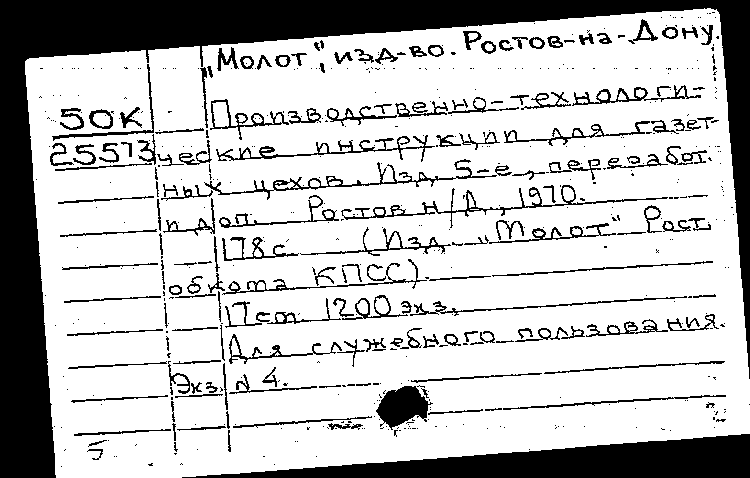 „Молот“, изд-во. Ростов-на-Дону.
50К Производственно-технологи-
25573 ческие инструкции для газет-
ных цехов. Изд. 5-е, переработ.
и доп. Ростов н/Д., 1970.
178 с. (Изд. „Молот“ Рост.
обкома КПСС).
17 см. 1200 экз.
Для служебного пользования.
Экз. N 4.
5